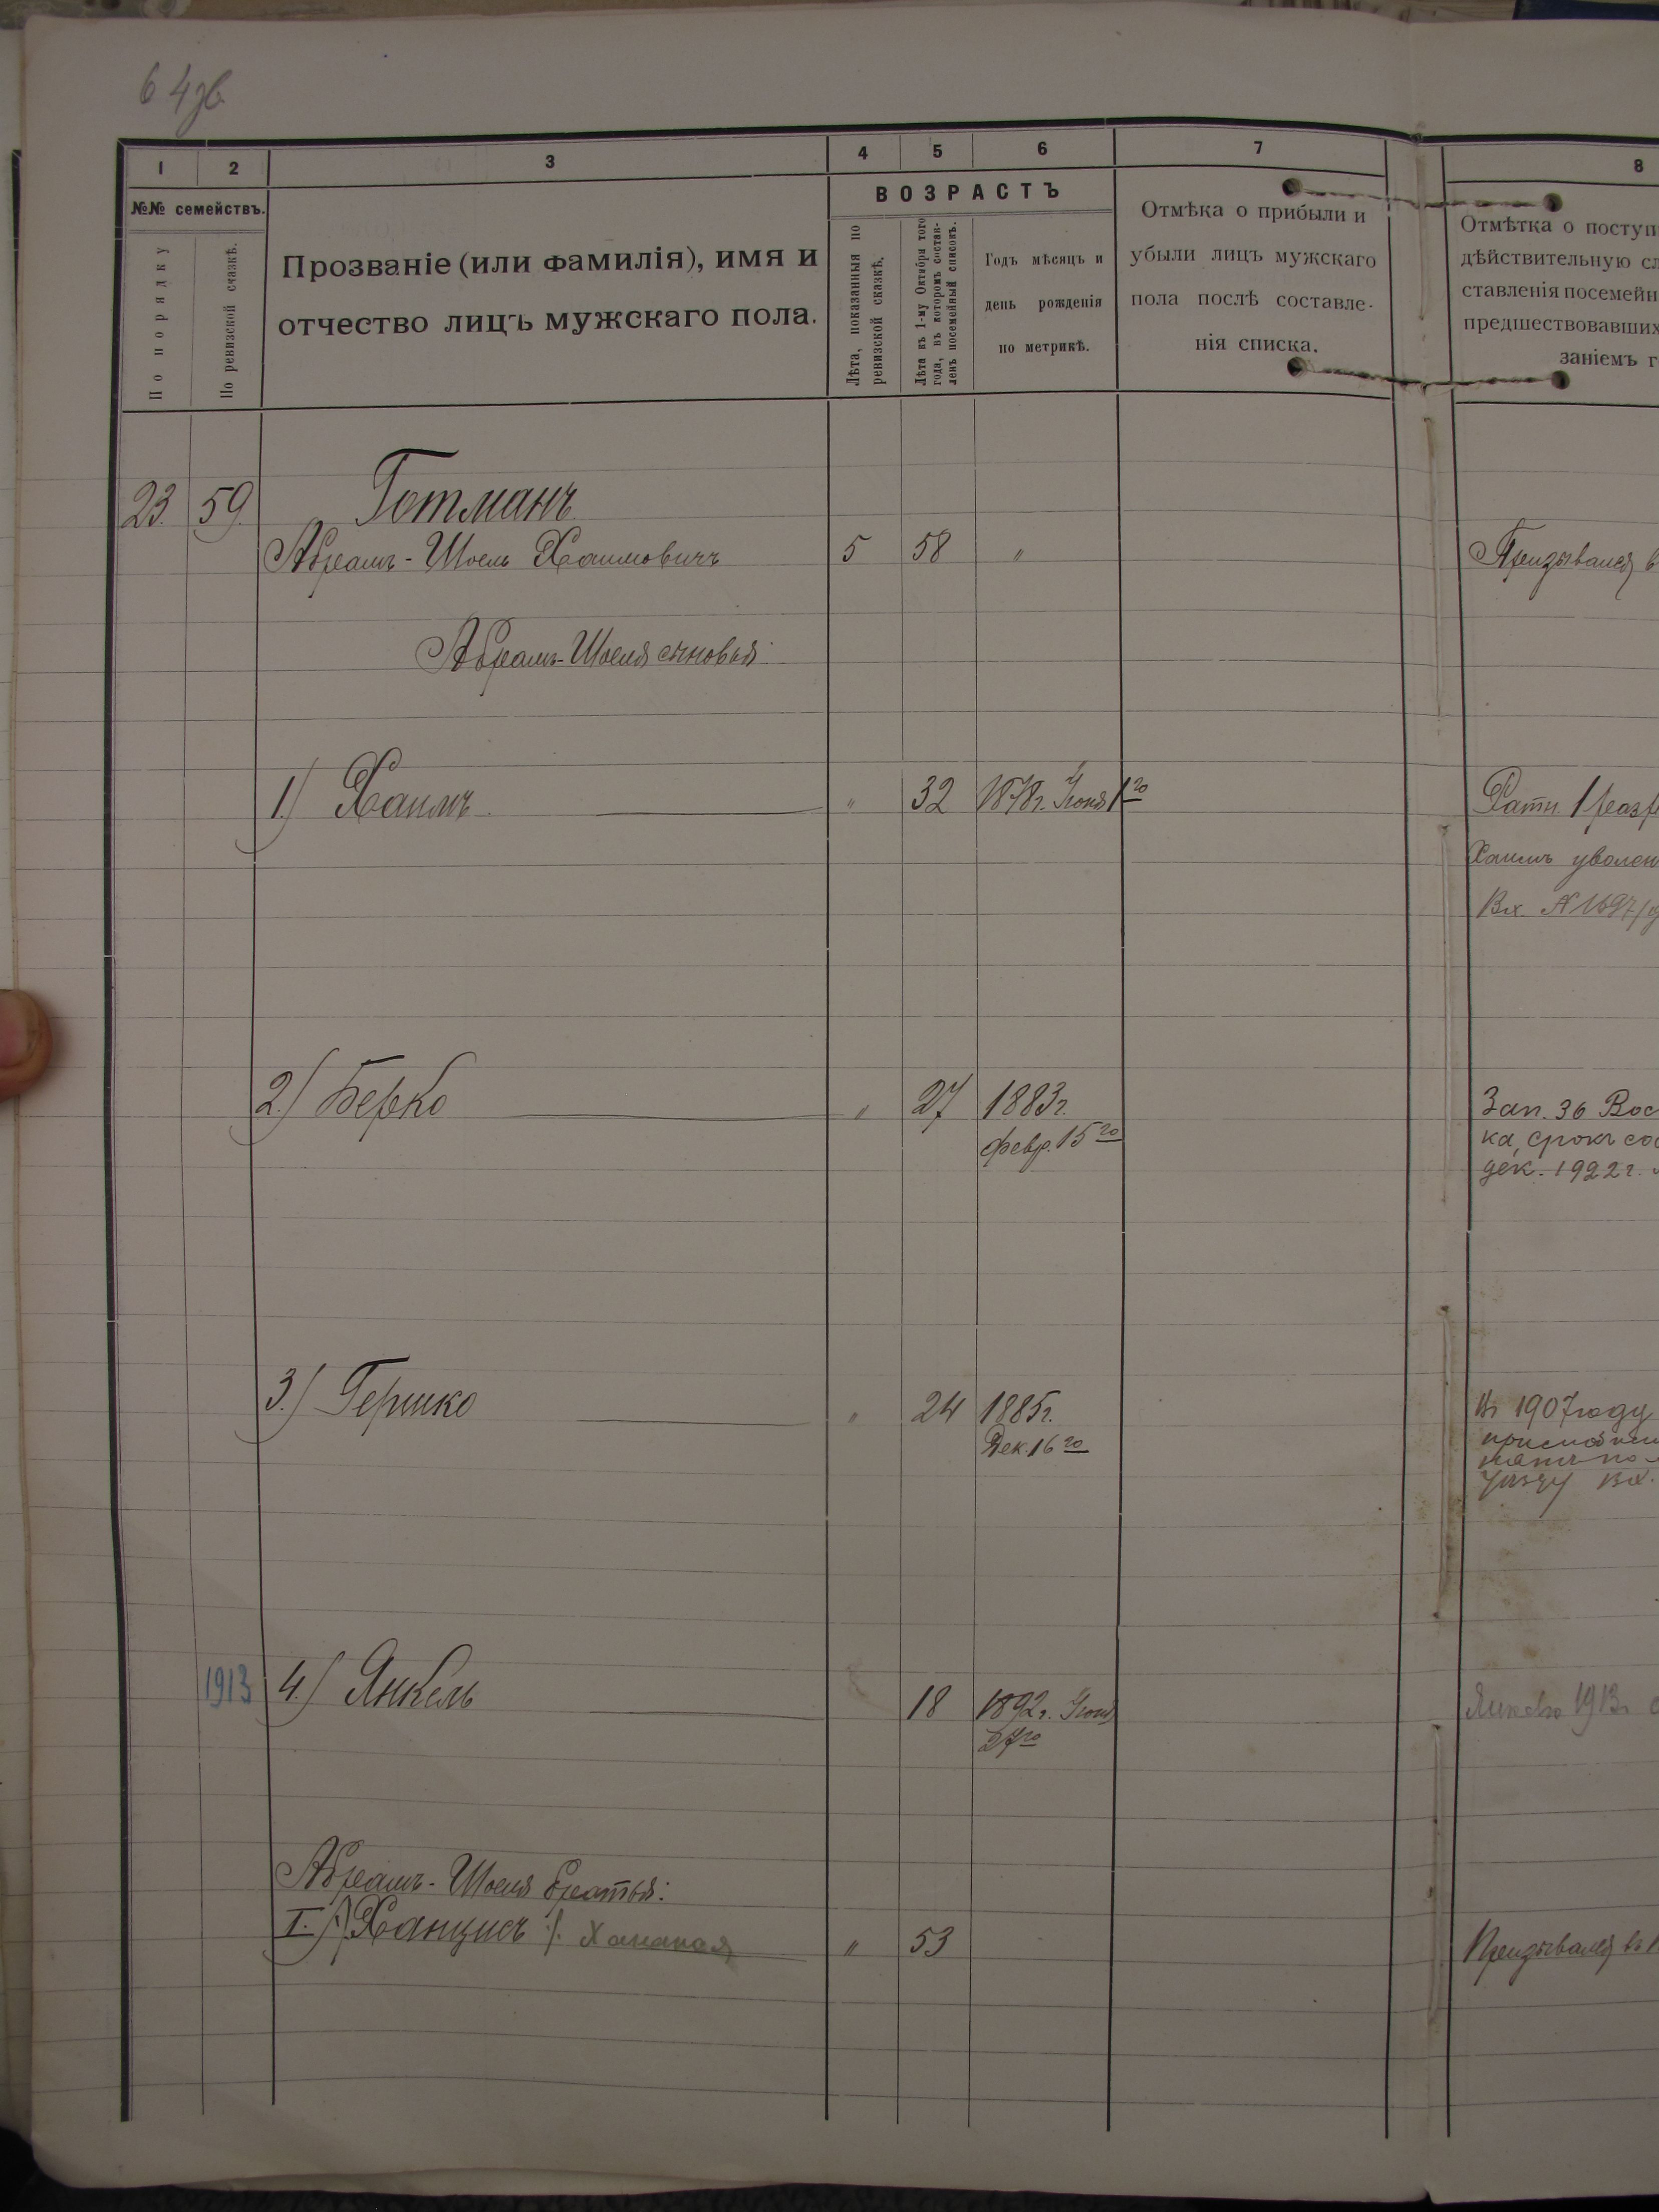 64 зв
1 2 3 4 5 6 7 8
№№ семействъ.
По порядку
По ревизской сказкѣ.
Прозваніе (или фамилія), имя и
отчество лицъ мужскаго пола.
ВОЗРАСТЪ
Лѣта, показанныя по
ревизской сказкѣ.
Лѣта къ 1-му Октября того
года, въ которомъ состав-
ленъ посемейный списокъ.
Годъ мѣсяцъ и
день рожденія
по метрикѣ.
Отмѣка о прибыли и
убыли лицъ мужскаго
пола послѣ составле-
нія списка.
Отмѣтка о поступ
дѣйствительную сл
ставленія посемейн
предшествовавших
заніемъ г
23. 59. Готманъ
Абрамъ-Шоель Хаимовичъ 5 58 " Призывался в
Абрамъ-Шоеля сыновья:
1.) Хаимъ " 32 1878 г. Іюня 1го Ратн. 1 разр
Хаимъ уволен
Вх. № 1697/
2.) Берко " 27 1883 г.
февр. 15го
Зап. 36 Вос
ка, срокъ со
дек. 1922 г.
3.) Гершко " 24 1885 г.
Дек. 16го
Въ 1907 году
уѣзду вх.
1913 4.) Янкель 18 1892 г. Іюня
27го
1913г
Абрамъ-Шоеля братья:
I.) Ханцисъ /. Хананая " 53 Призывался въ